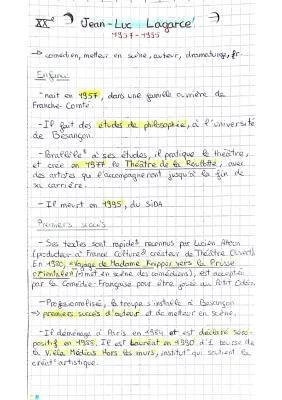 XXe Jean-Luc Lagarce
1957-1995
→ comédien, metteur en scène, auteur, dramaturge, fr.
Enfance
- naît en 1957, dans une famille ouvrière de
Franche-Comté.
- Il fait des études de philosophie, à l'université
de Besançon.
- Parallèlt à ses études, il pratique le théâtre,
et crée en 1977 le Théâtre de la Roulotte, avec
des artistes qui l'accompagneront jusqu'à la fin de
sa carrière.
- Il meurt en 1995, du SIDA
Premiers succès
- Ses textes sont rapidt reconnus par Lucien Attoun
(producteur à France Culture et créateur de Théâtre Ouvert).
En 1980, «Voyage de Madame Knipper vers la Prusse
orientale» (met en scène des comédiens), est acceptée
par la Comédie-Française pour être jouée au Petit Odéon.
- Professionnalisé, la troupe s'installe à Besançon
→ premiers succès d'auteur et de metteur en scène.
- Il déménage à Paris en 1984 et est déclaré séro-
positif en 1988. Il est Lauréat en 1990 d'1 bourse de
la Villa Médicis Hors les murs, institut° qui soutient la
créat° artistique.